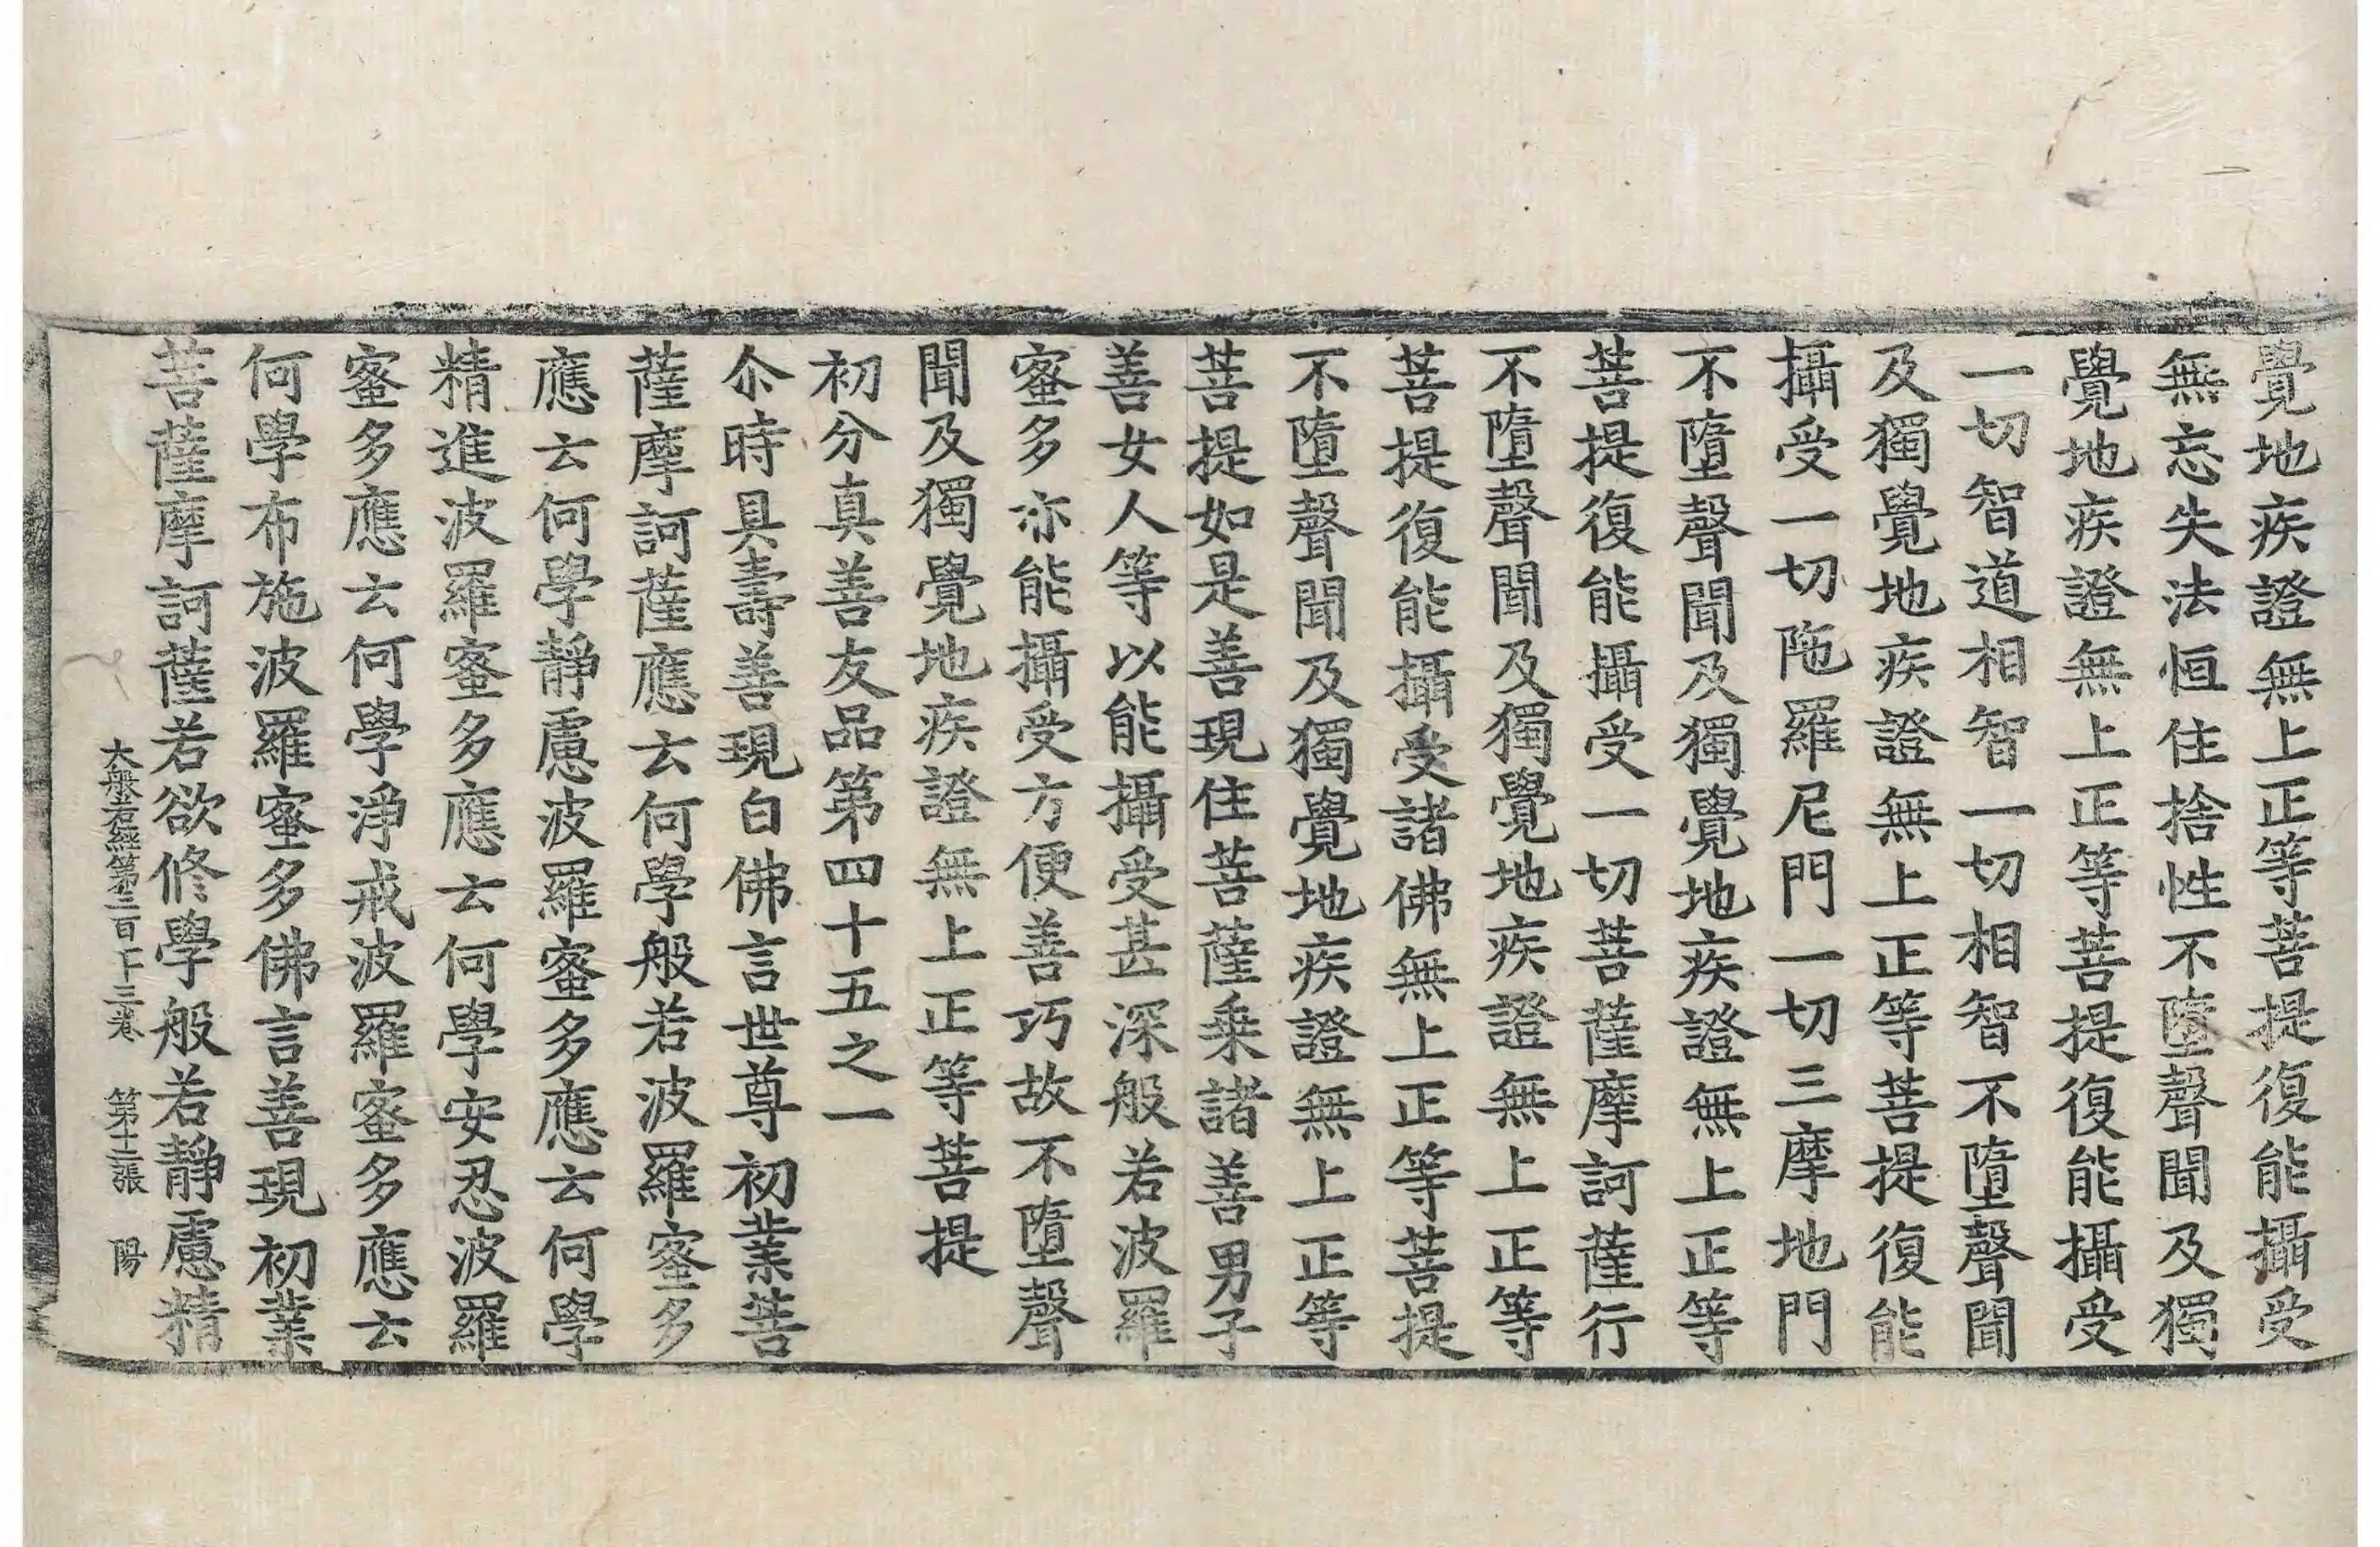 覺地疾證無上正等菩提復能攝受
無忘失法恒住捨性不墮聲聞及獨
覺地疾證無上正等菩提復能攝受
一切智道相智一切相智不墮聲聞
及獨覺地疾證無上正等菩提復能
攝受一切陁羅尼門一切三摩地門
不墮聲聞及獨覺地疾證無上正等
菩提復能攝受一切菩薩摩訶薩行
不墮聲聞及獨覺地疾證無上正等
菩提復能攝受諸佛無上正等菩提
不墮聲聞及獨覺地疾證無上正等
菩提如是善現住菩薩乗諸善男子
善女人等以能攝受甚深般若波羅
蜜多亦能攝受方便善巧故不墮聲
聞及獨覺地疾證無上正等菩提
初分真善友品第四十五之一
尒時具壽善現白佛言世尊初業菩
薩摩訶薩應云何學般若波羅蜜多
應云何學靜慮波羅蜜多應云何學
精進波羅蜜多應云何學安忍波羅
蜜多應云何學淨戒波羅蜜多應云
何學布施波羅蜜多佛言善現初業
菩薩摩訶薩若欲修學般若靜慮精
大般若經第三百十三卷 第十二張 陽